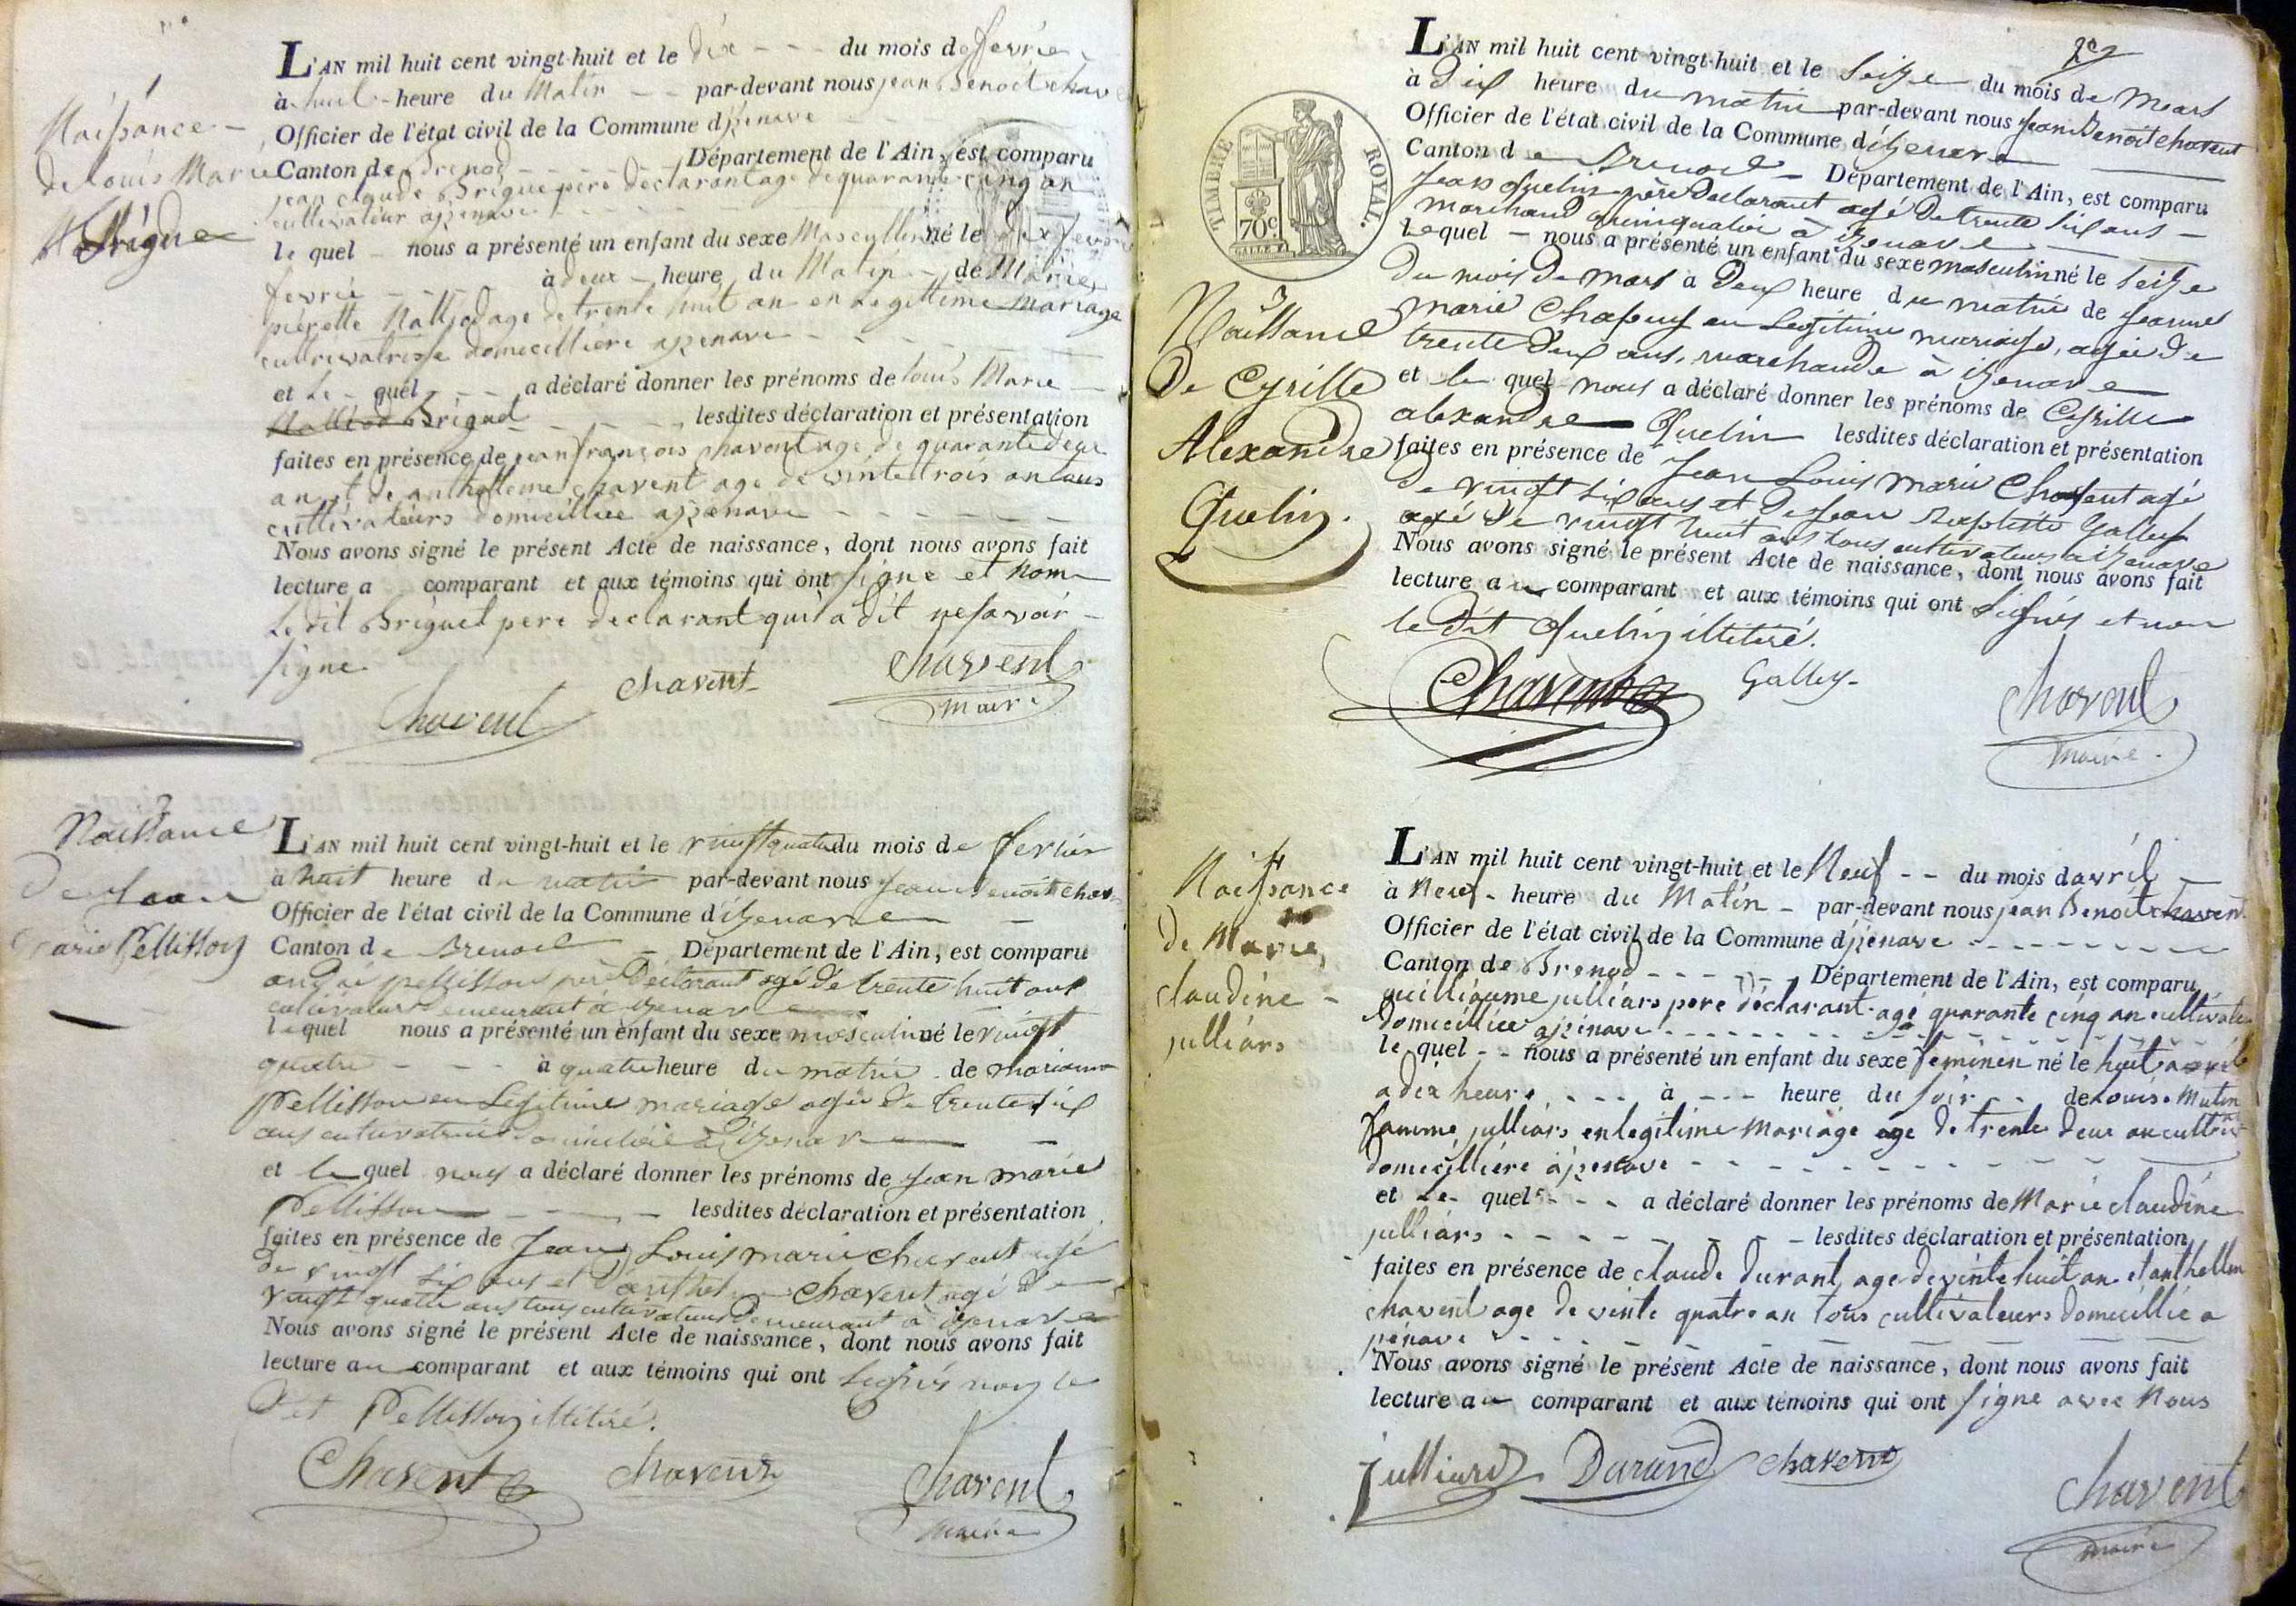 1
Naissance
de Louis Marie
Brigue
L'AN mil huit cent vingt-huit et le dix - - - du mois de fevrie
à huit - heure du Matin - - par-devant nous jean Benoit chave
Officier de l'état civil de la Commune d'jzenave
Canton de Brenod - - - Département de l'Ain, est comparu
jean claude Brigue pere declarant age de quarante cinq an
cultivateur a jzenave
le quel - nous a présenté un enfant du sexe Mascullin né le dix fevrie
fevrie - - - - à deux - heure du Matin - de Marie
pierette Nallod age de trente huit an en legittime Mariage
cultivatrisse domecilliére a jzenave - - - -
et Le - quel - - - a déclaré donner les prénoms de louis Marie -
Brigud - - - - lesdites déclaration et présentation
faites en présence de jean françois chavent age de quarante deux
an et de anthelleme chavent age de vinte trois an tous
cultivateurs domecilliee a jzenave - - - - -
Nous avons signé le présent Acte de naissance, dont nous avons fait
lecture a comparant et aux témoins qui ont signe et Nom
Le dit Briguet pere declarant qui a dit ne savoir -
signe
Chavent chavent Chavent
Maire
2
Naissance
de Jean
Marie Pellisson
L'AN mil huit cent vingt-huit et le vingt quatre du mois de fevrier
à huit heure du matin par-devant nous Jean Benoit Chav
Officier de l'état civil de la Commune d'izenave -
Canton de Brenod - Département de l'Ain, est comparu
andré pellisson père Déclarant agé de trente huit ans
cultivateur demeurant à izenave
lequel nous a présenté un enfant du sexe masculin né le vingt
quatre - - - à quatre heure du matin de mariame
Pellisson en Legitime mariage agée de trente six
ans cultivatrice domiciliée à izenave -
et le quel nous a déclaré donner les prénoms de jean marie
Pellisson - - - lesdites déclaration et présentation
faites en présence de Jean Louis marie Chavent agé
de vingt six ans et d'anthelme Chavent agé de
vingt quatre ans tous cultivateurs Demeurant à izenave
Nous avons signé le présent Acte de naissance, dont nous avons fait
lecture au comparant et aux témoins qui ont signés non le
Dit Pellisson illitiré.
Chavent chavent Chavent
Maire
TIMBRE ROYAL.
70c
3
Naissance
De Cyrille
Alexandre
Quelin.
L'AN mil huit cent vingt-huit et le Seize du mois de Mars
à Dix heure du matin par-devant nous Jean Benoit Chavent
Officier de l'état civil de la Commune d'izenave
Canton de Brenod - Département de l'Ain, est comparu
Jean Quelin père Declarant agé de trente six ans -
marchand quinquallier à izenave -
Lequel - nous a présenté un enfant du sexe masculin né le Seize
du mois de mars à Deux heure du matin de jeanne
marie Chapuy en Legitime mariage, agée de
trente Deux ans, marchande à izenave
et le quel nous a déclaré donner les prénoms de Cyrille
alexandre Quelin lesdites déclaration et présentation
faites en présence de Jean Louis Marie Chavent agé
de vingt six ans et de Jean Baptiste Galley
agé de vingt huit ans tous cultivateurs à izenave
Nous avons signé le présent Acte de naissance, dont nous avons fait
lecture au comparant et aux témoins qui ont Signés et non
le Dit Quelin illitiré.
Chavent Galley Chavent
Maire.
4
Naissance
de Marie
claudine -
julliars
L'AN mil huit cent vingt-huit et le Neuf - - du mois d'avril -
à Neuf - heure du Matin - par-devant nous jean Benoit chavent
Officier de l'état civil de la Commune d'jzenave - - - - - -
Canton de Brenod - - - - - Département de l'Ain, est comparu
guilliaume julliars pere déclarant agé quarante cinq an cultivate
domecilliee a jzenave - - - - - - - -
le quel - - nous a présenté un enfant du sexe feminen né le huit avril
a dix heure - - - à - - - heure du soir - - de Louise Mutin
famme julliars en legitime Mariage age de trente deux an cultivat
domecilliére a jzenave - - - - - - - -
et Le - quel - - - a déclaré donner les prénoms de Marie claudine
julliars - - - - - - - - lesdites déclaration et présentation
faites en présence de claude durant age de vinte huit an et anthellem
chavent age de vinte quatre an tous cultivateurs domecillié a
jzenave - - - -
Nous avons signé le présent Acte de naissance, dont nous avons fait
lecture au comparant et aux témoins qui ont signe avec Nous
julliard Durand chavent
Chavent
Maire